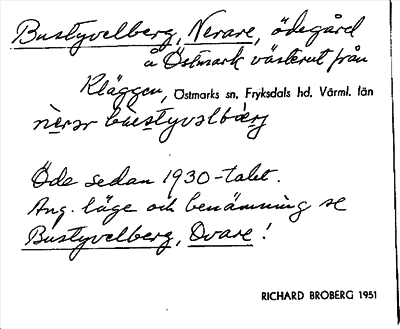 Bustyvelberg, Nerare, ödegård
å Östmark västerut från
Kläggen, Östmarks sn. Fryksdals hd. Värml. län

Öde sedan 1930-talet.
Ang. läge och benämning se
Bustyvelberg, Ovare!
RICHARD BROBERG 1951